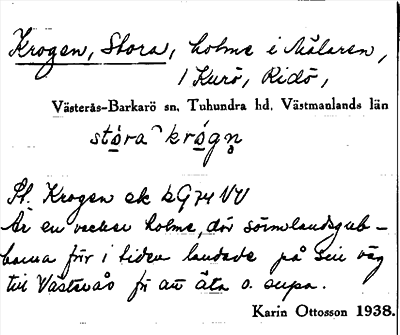 Krogen, Stora, holme i Mälaren,
1 Kurö, Ridö,
Västerås-Barkarö sn, Tuhundra hd, Västmanlands län
stóra krógn̥
Pl. Krogen ek bG74 VV
Är en vacker holme, där sörmlandsgub-
barna förr i tiden landade på sin väg
till Västerås för att äta o. supa.
Karin Ottosson 1938.